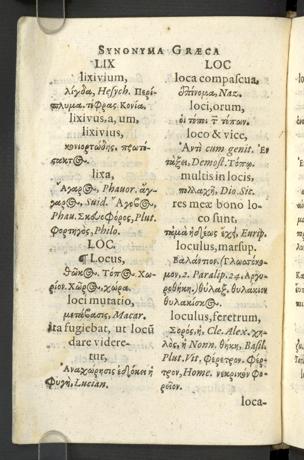 SYNONYMA GRÆCA
LIX
lixivium,
λίγδα, Hesych. Περί-
πλυμα. τέφρας Κονία.
lixivus, a, um,
lixivius,
κονιορτώδης.
lixa,
Phavor.
Suid.
Phau. Σκευοφόρος, Plut.
Φορτηγὸς, Philo.
LOC.
¶ Locus,
Τόπος. Χω-
ρίον. Χῶρος, χώρα.
loci mutatio,
μετάβασις, Macar.
ita fugiebat, ut locũ
dare videre-
tur,
Ἀναχωρήσεις ἐδόκει ἡ
Φυγὴ, Lucian.
LOC
loca compascua,
Naz.
loci, orum,
οἱ τόποι τῶν τόπων.
loco & vice,
Ἀντὶ cum genit. Ἐν
τάξει, Demost.
multis in locis,
πολλαχῇ, Dio. Sic.
res meæ bono lo-
co sunt,
ἔχῃ, Eurip.
loculus, marsup.
Βαλάντιον. Γλωσσόκο-
μον, 2. Paralip. 24.
θύλαξ. θυλάκιον
θυλακίσκος.
loculus, feretrum,
Σορὸς, ἡ, Cle. Alex. χη-
λὸς, ἡ Nonn. θήκη, Basil.
Plut. Vit. Φέρετρον. Φέρ-
τρον, Home. νεκρικὸν φο-
ρεῖον.
loca-